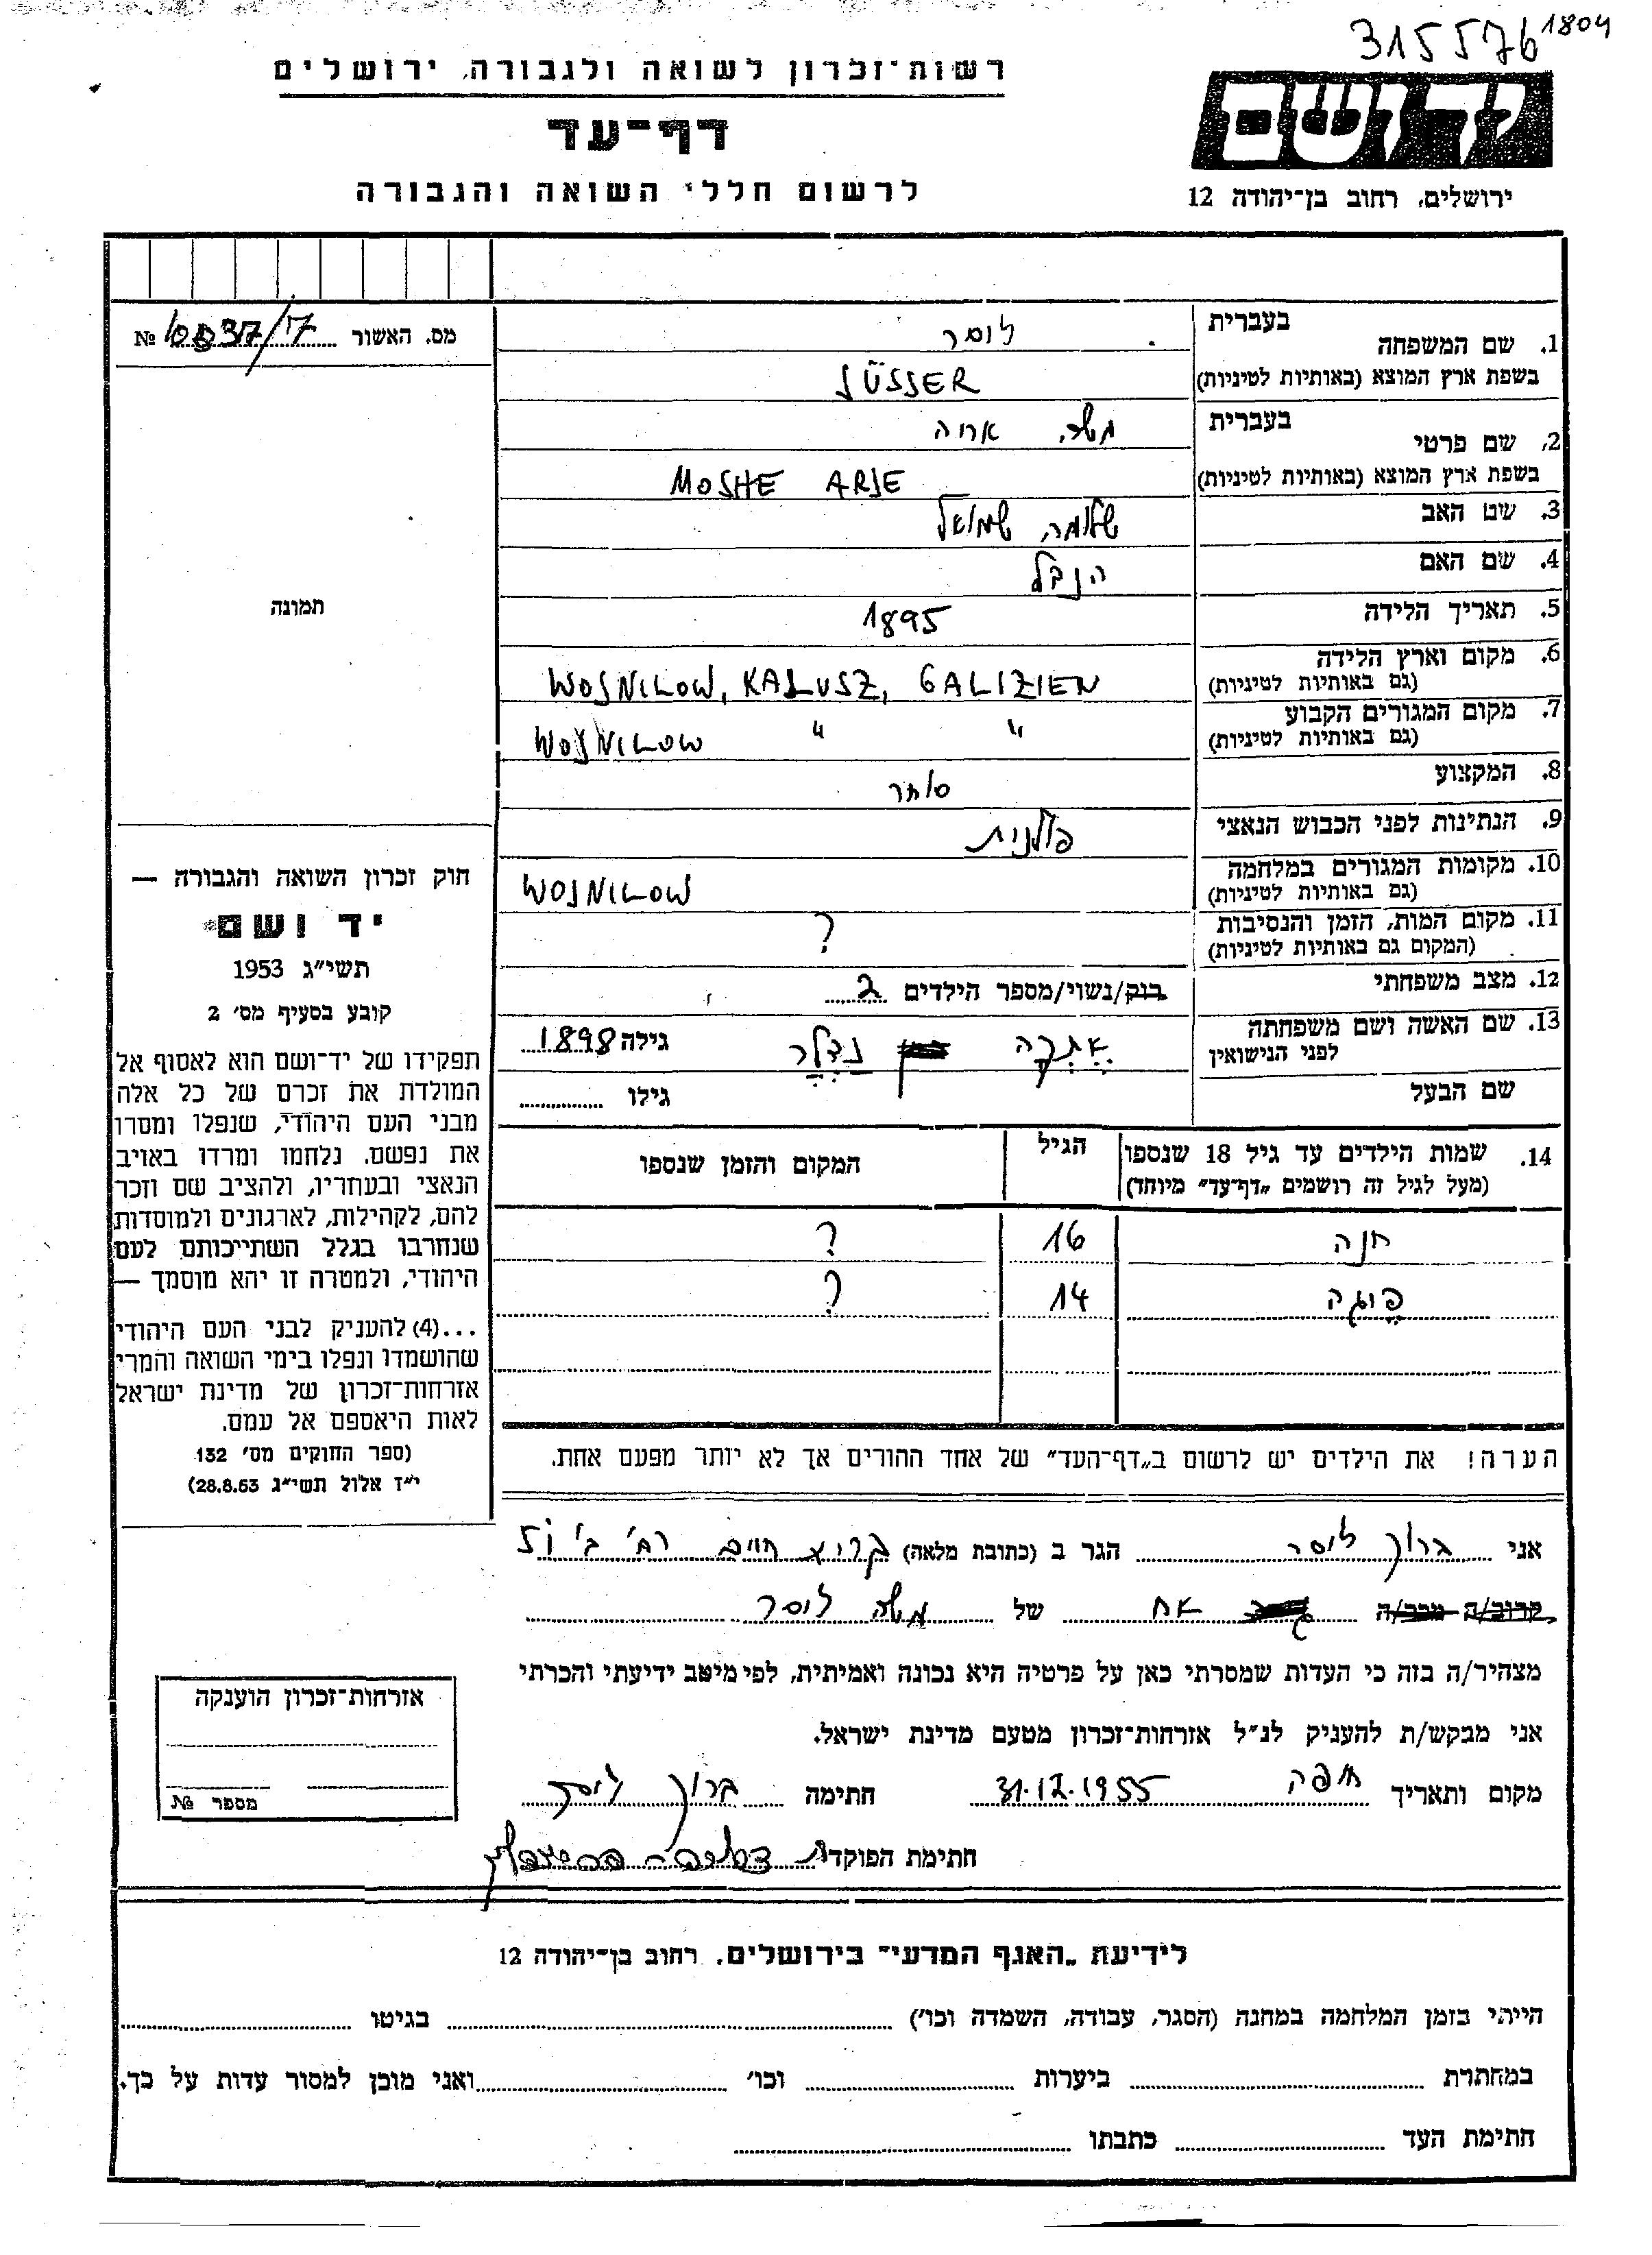 315576 1804
רשות־זכרון לשואה ולגבורה, ירושלים
דף־עד
לרשום חללי השואה והגבורה
יד ושם
ירושלים, רחוב בן־יהודה 12
מס. האשור № 17/
1. שם המשפחה בעברית
בשפת ארץ המוצא (באותיות לטיניות) SÜSSER
2. שם פרטי בעברית משה אריה
בשפת ארץ המוצא (באותיות לטיניות) MOSHE ARJE
3. שם האב שלמה שמואל
4. שם האם
5. תאריך הלידה 1895
6. מקום וארץ הלידה
(גם באותיות לטיניות) WOJNILOW, KALUSZ, GALIZIEN
7. מקום המגורים הקבוע
(גם באותיות לטיניות) WOJNILOW " "
8. המקצוע סוחר
9. הנתינות לפני הכבוש הנאצי פולנית
10. מקומות המגורים במלחמה
(גם באותיות לטיניות) WOJNILOW
11. מקום המות, הזמן והנסיבות ?
(המקום גם באותיות לטיניות)
12. מצב משפחתי רוק/נשוי/מספר הילדים 2
13. שם האשה ושם משפחתה
לפני הנישואין נדלר גילה 1898
שם הבעל גילו
14. שמות הילדים עד גיל 18 שנספו הגיל המקום והזמן שנספו
(מעל לגיל זה רושמים „דף־עד" מיוחד)
חנה 16 ?
14 ?
הערה! את הילדים יש לרשום ב„דף־העד" של אחד ההורים אך לא יותר מפעם אחת.
תמונה
חוק זכרון השואה והגבורה —
יד ושם
תשי"ג 1953
קובע בסעיף מס׳ 2
תפקידו של יד־ושם הוא לאסוף אל
המולדת את זכרם של כל אלה
מבני העם היהודי, שנפלו ומסרו
את נפשם, נלחמו ומרדו באויב
הנאצי ובעחריו, ולהציב שם וזכר
להם, לקהילות, לארגונים ולמוסדות
שנחרבו בגלל השתייכותם לעם
היהודי, ולמטרה זו יהא מוסמך —
...(4) להעניק לבני העם היהודי
שהושמדו ונפלו בימי השואה והמרי
אזרחות־זכרון של מדינת ישראל
לאות היאספם אל עמם.
(ספר החוקים מס׳ 132
י"ז אלול תשי"ג 28.8.53)
אני ברוך הגר ב (כתובת מלאה) חיים
קרוב/ה מכר/ה אח של משה
מצהיר/ה בזה כי העדות שמסרתי כאן על פרטיה היא נכונה ואמיתית, לפי מיטב ידיעתי והכרתי
אני מבקש/ת להעניק לנ"ל אזרחות־זכרון מטעם מדינת ישראל.
מקום ותאריך חיפה 31.12.1955 חתימה ברוך
חתימת הפוקד
אזרחות־זכרון הוענקה
מספר №
לידיעת „האגף המדעי" בירושלים, רחוב בן־יהודה 12
הייתי בזמן המלחמה במחנה (הסגר, עבודה, השמדה וכו׳) בגיטו
במחתרת ביערות וכו׳ ואני מוכן למסור עדות על כך.
חתימת העד כתבתו